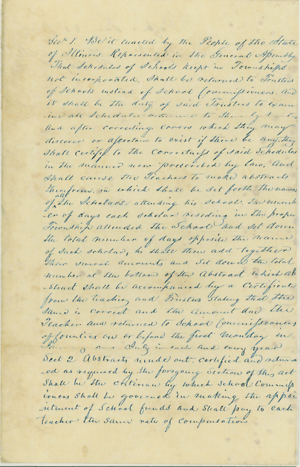 Sec 1. Be it enacted by the People of the State
of Illinois Represented in the General Assembly
That Schedules of Schools kept in Townships
not incorporated Shall be returned to Trustees
of Schools instead of School Commissioners And
it shall be the duty of said Trustees to exam
ine all Schedules returned to them by
and after correcting errors which they may
discover or ascertain to exist if there be any they
Shall certify to the Correctness of said Schedules
in the manner now prescribed by law, And
Shall cause the Teachers to make abstracts
therefrom in which Shall be set forth the names
of the Scholars attending his School the numb
er of days each scholar residing in the proper
Township attended the School and set down
the total number of days opposite the name
of such scholar, he shall then add together
their several amounts and set down the total
number at the bottom of the Abstract which Ab
stract Shall be accompanied by a Certificate
from the teacher and Trustees stating that the
same is correct and the amount due the
Teacher and returned to School Commissioners
of Counties on or before the first Monday in
July in each and every year
Sect 2. Abstracts made out, certified and return
ed as required by the foregoing section of this act
Shall be the criterion by which School Commiss
ioners Shall be governed in making the appor
tionment of School funds and Shall pay to each
teacher the same rate of compensation